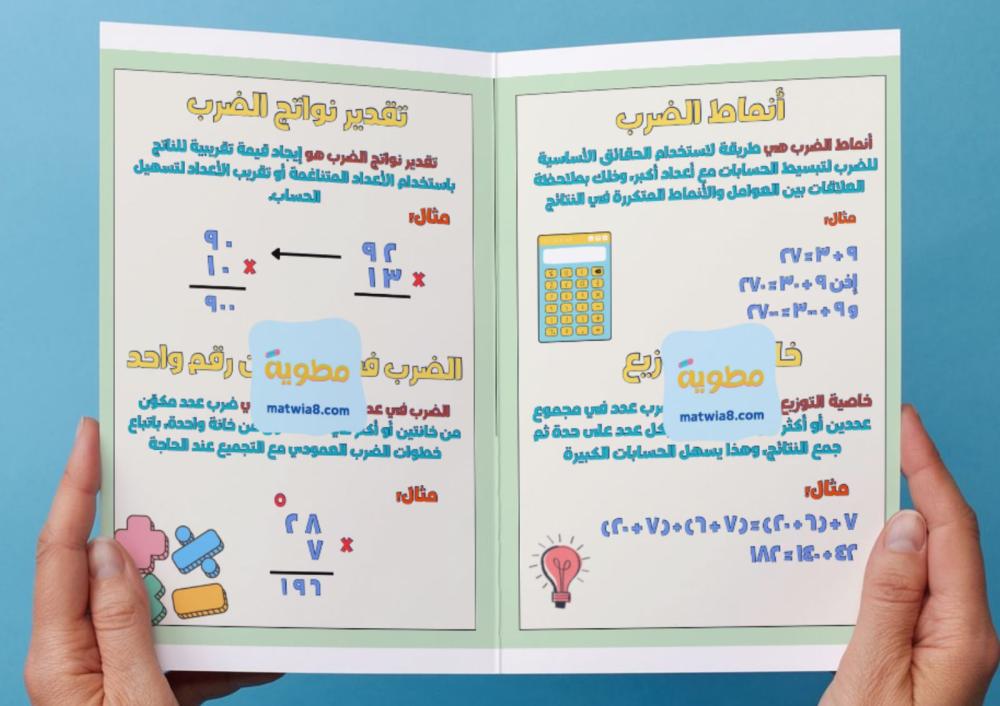 أنماط الضرب
أنماط الضرب هي طريقة لاستخدام الحقائق الأساسية
للضرب لتبسيط الحسابات مع أعداد أكبر، وذلك بملاحظة
العلاقات بين العوامل والأنماط المتكررة في النتائج
مثال:
٩ ÷ ٣ = ٢٧
إذن ٩ ÷ ٣٠ = ٢٧٠
و ٩ ÷ ٣٠٠ = ٢٧٠٠
مطوية
matwia8.com
خاصية التوزيع
عددين أو أكثر كل عدد على حدة ثم
جمع النتائج، وهذا يسهل الحسابات الكبيرة
مثال:
٧ ÷ (٦ + ٢٠) = (٧ ÷ ٦) + (٧ ÷ ٢٠)
٤٢ + ١٤٠ = ١٨٢
تقدير نواتج الضرب
تقدير نواتج الضرب هو إيجاد قيمة تقريبية للناتج
باستخدام الأعداد المتناغمة أو تقريب الأعداد لتسهيل
الحساب.
مثال:
٩٢
١٣ ×
٩٠
١٠ ×
٩٠٠
الضرب رقم واحد
مطوية
matwia8.com
الضرب في ضرب عدد مكوّن
من خانتين أو أكثر من خانة واحدة، باتباع
خطوات الضرب العمودي مع التجميع عند الحاجة
مثال:
٥
٢٨
٧ ×
١٩٦